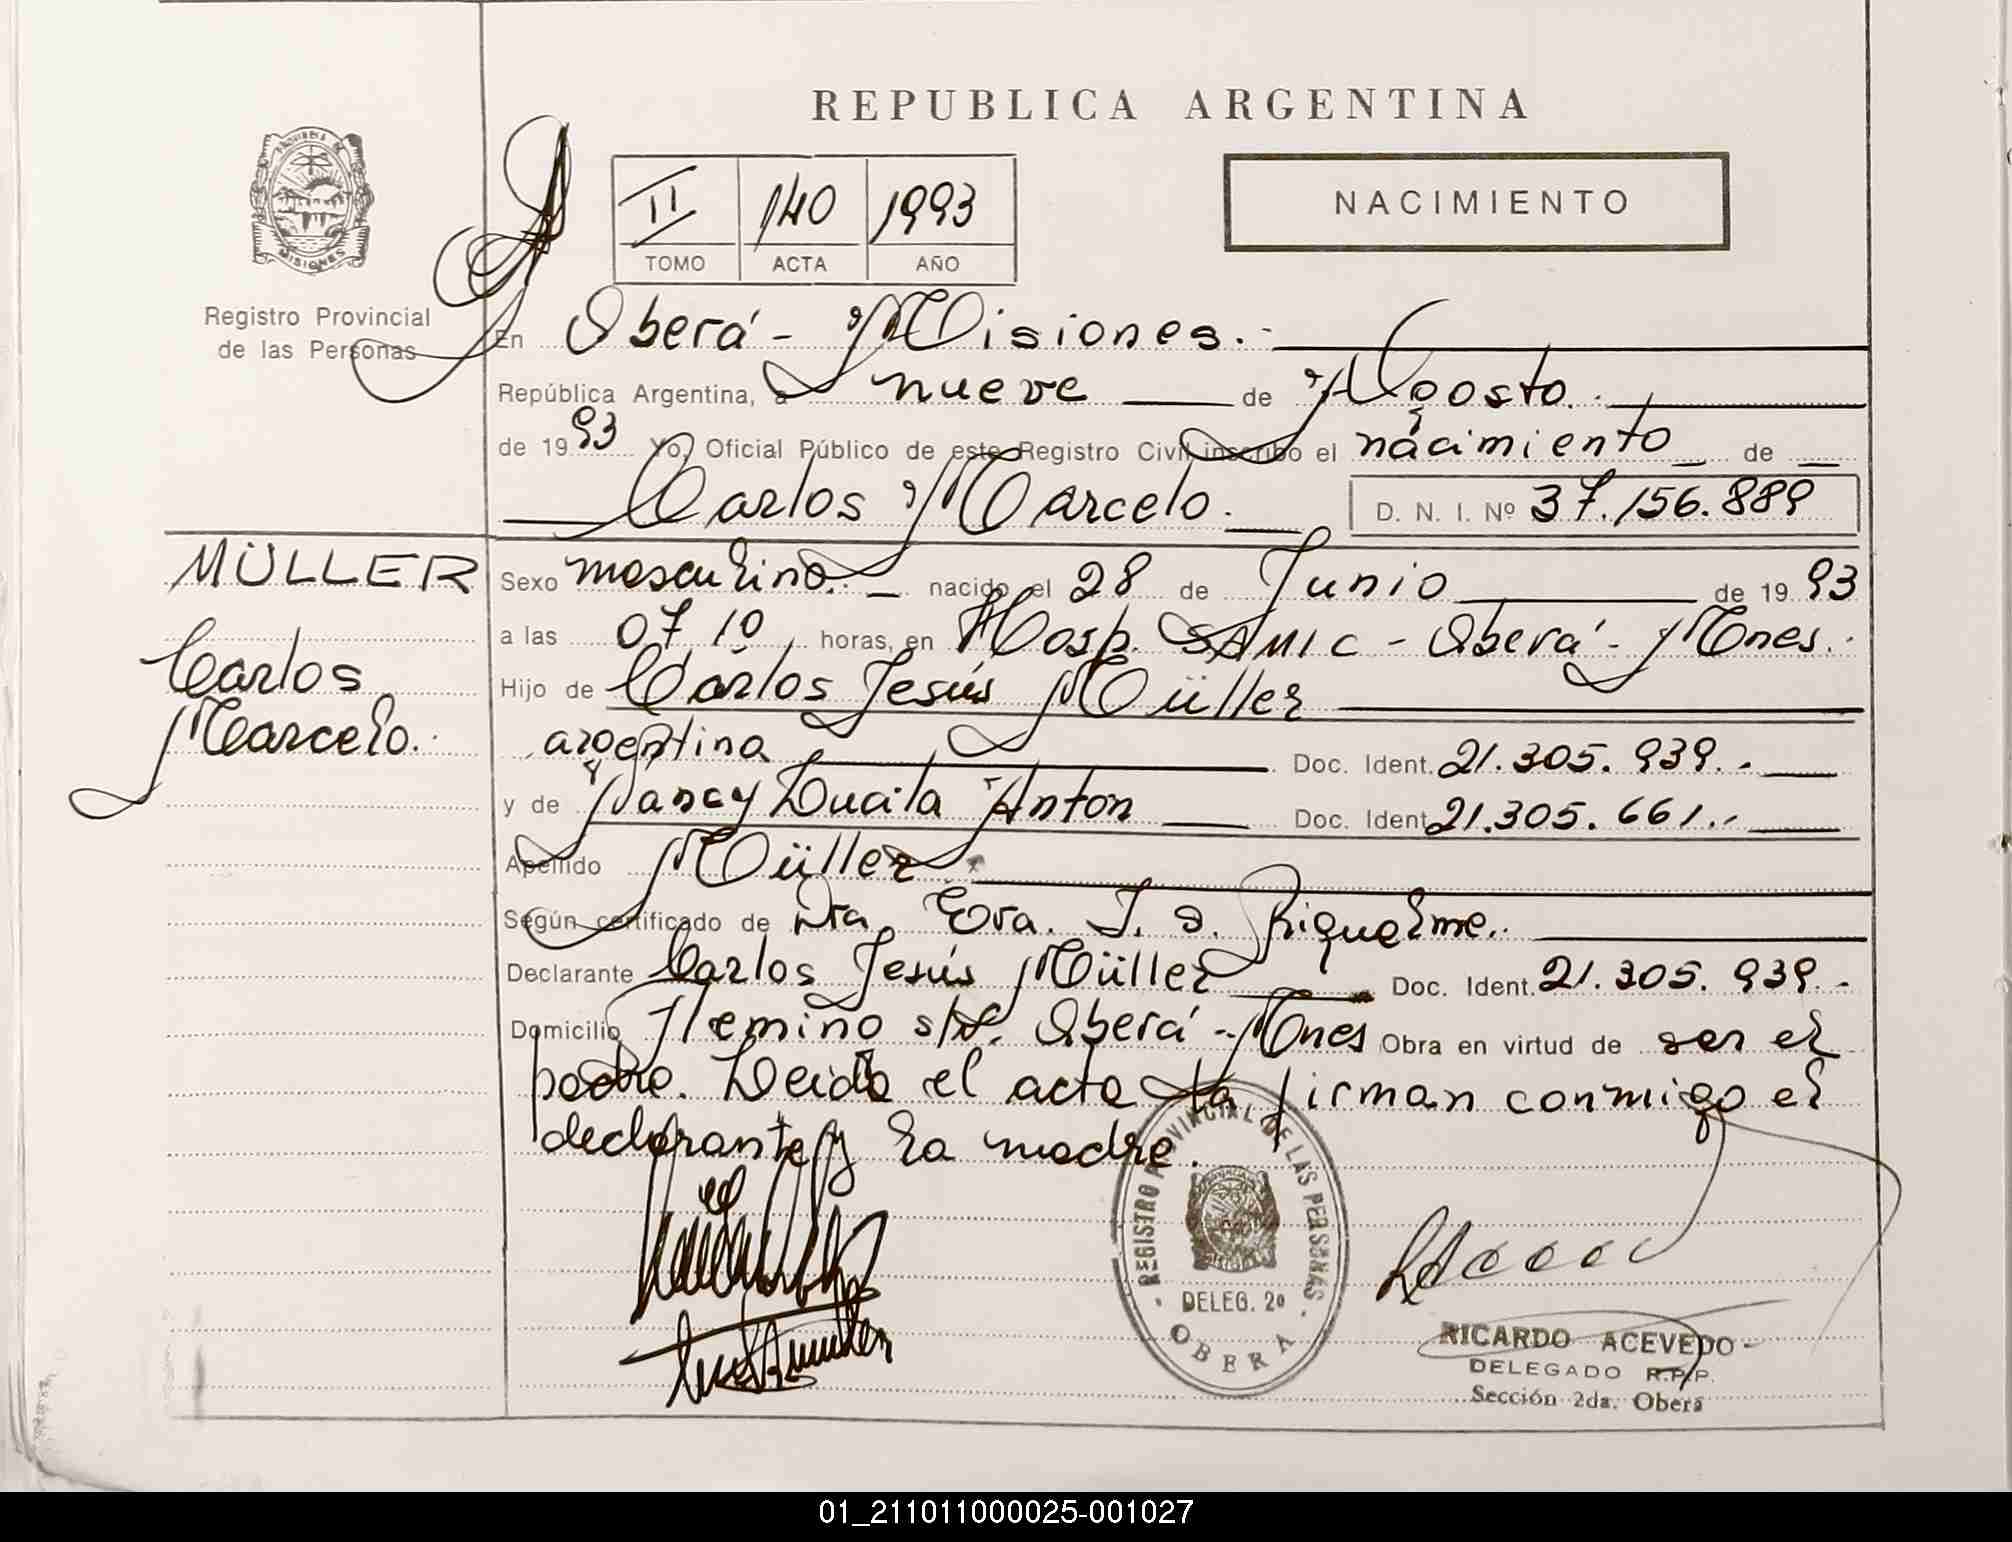 REPUBLICA ARGENTINA
PROVINCIA DE MISIONES
Registro Provincial
de las Personas
II 140 1993
TOMO ACTA AÑO
NACIMIENTO
En Oberá - Misiones.-
República Argentina, a nueve de Agosto.
de 1993 Yo, Oficial Público de este Registro Civil inscribo el nacimiento de
Carlos Marcelo. D. N. I. Nº 37.156.889
MÜLLER
Carlos
Marcelo.-
Sexo masculino. nacido el 28 de Junio de 1993
a las 07 10 horas, en Hosp. SAMIC - Oberá - Mnes.-
Hijo de Carlos Jesús Müller
argentina Doc. Ident. 21.305.939.-
y de Nancy Lucila Anton Doc. Ident. 21.305.661.-
Apellido Müller
Según certificado de Dra. Eva. J. d. Riquelme.
Declarante Carlos Jesús Müller Doc. Ident. 21.305.939.-
Domicilio Fleming s/N. Oberá - Mnes Obra en virtud de ser el
padre. Leida el acta la firman conmigo el
declarante y la madre.
REGISTRO PROVINCIAL DE LAS PERSONAS
DELEG. 2º
OBERA
RICARDO ACEVEDO
DELEGADO R.P.P.
Sección 2da. Oberá
01_211011000025-001027